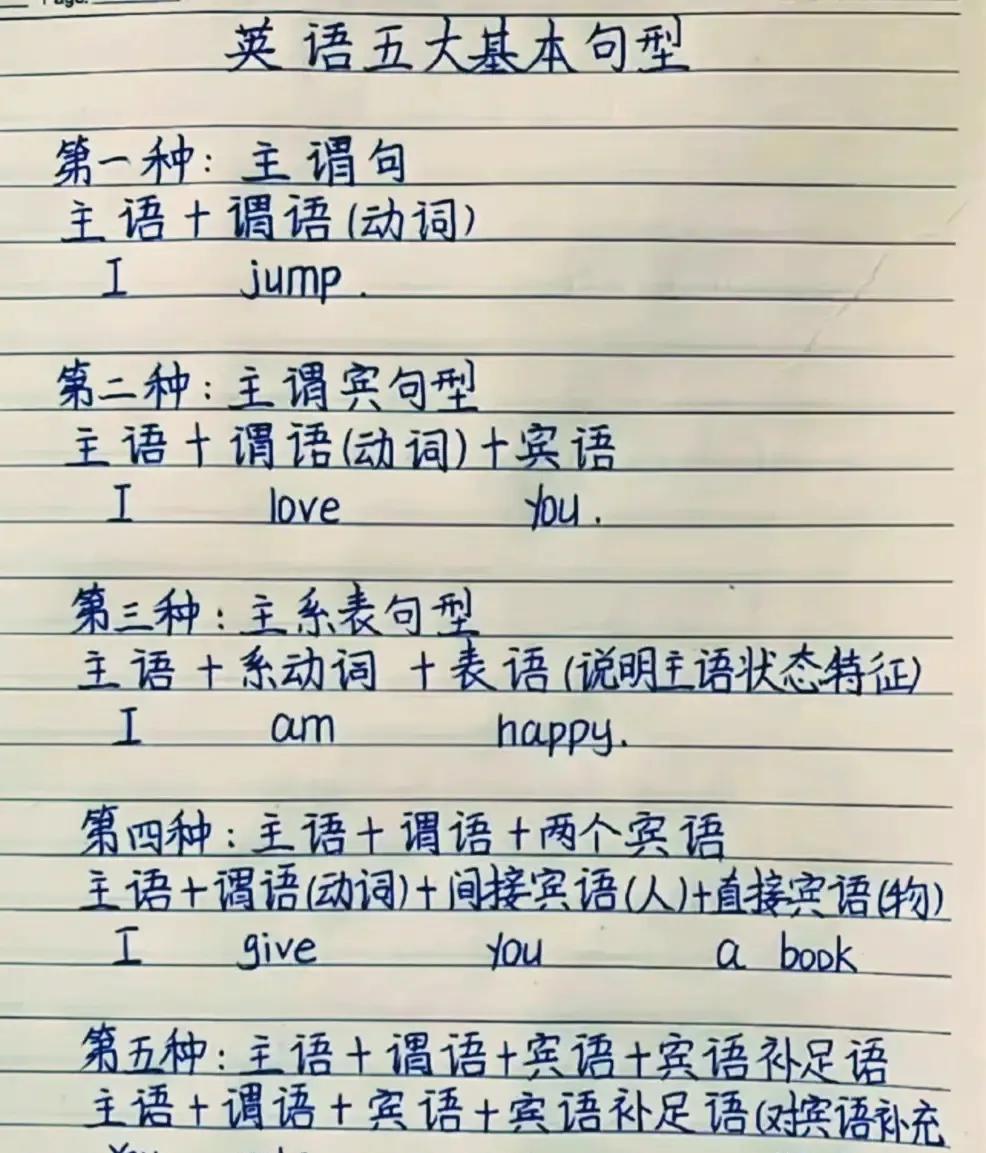 英语五大基本句型
第一种：主谓句
主语+谓语(动词)
I jump.
第二种：主谓宾句型
主语+谓语(动词)+宾语
I love you.
第三种：主系表句型
主语+系动词+表语(说明主语状态特征)
I am happy.
第四种：主语+谓语+两个宾语
主语+谓语(动词)+间接宾语(人)+直接宾语(物)
I give you a book
第五种：主语+谓语+宾语+宾语补足语
主语+谓语+宾语+宾语补足语(对宾语补充